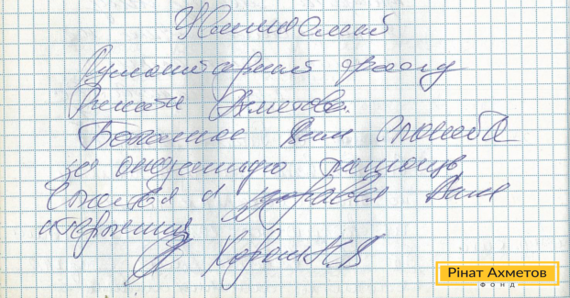 Гуманитарный фонду
Рината Ахметова.
Большое Вам спасибо
за оказанную помощь
Счастья и здоровья Вам
и терпения
Рінат Ахметов
ФОНД